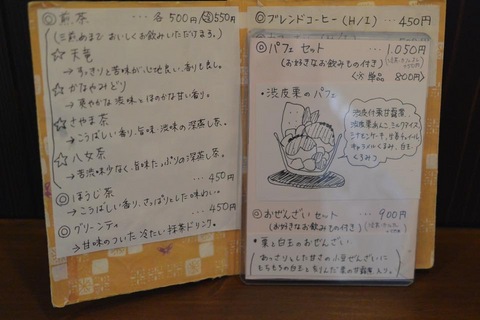 ◎煎茶 ... 各500円/550円
(三煎めまでおいしくお飲みいただけます。)
☆天竜
→すっきりと苦味が心地良い、香りも良し。
☆かなやみどり
→爽やかな渋味とほのかな甘い香り。
☆さやま茶
→こうばしい香り、旨味、渋味の深蒸し茶。
☆八女茶
→苦渋味少なく、旨味たっぷりの深蒸し茶。
◎ほうじ茶 ... 450円
→こうばしい香り、さっぱりとした味わい。
◎グリーンティ ... 450円
→甘味のついた冷たい抹茶ドリンク。
◎ブレンドコーヒー(H/I) ... 450円
◎パフェセット ... 1,050円
(お好きなお飲みもの付き)
単品 800円
・渋皮栗のパフェ
渋皮付栗甘露煮、
渋皮栗あんこ、ミルクアイス、
くるみ
◎おぜんざいセット ... 900円
(お好きなお飲みもの付き)
・栗と白玉のおぜんざい
あっさりとした甘さの小豆ぜんざいに
もちもちの白玉と刻んだ栗の甘露煮入り。